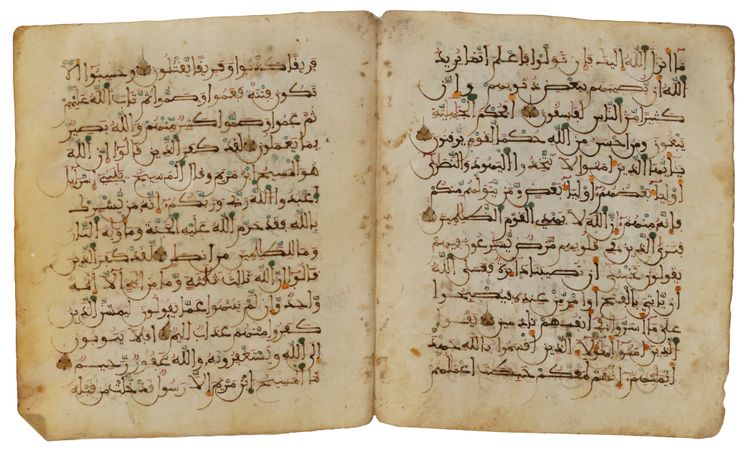 ما انزل الله اليك فان تولوا فاعلم انما يريد
الله ان يصيبهم ببعض ذنوبهم وان
كثيرا من الناس لفاسقون افحكم الجهلية
يبغون ومن احسن من الله حكما لقوم يوقنون
يايها الذين امنوا لا تتخذوا اليهود والنصرى
اوليا بعضهم اوليا بعض ومن يتولهم منكم
فانه منهم ان الله لا يهدي القوم الظلمين
فترى الذين في قلوبهم مرض يسرعون فيهم
يقولون نخشى ان تصيبنا دايرة فعسى الله
ان ياتي بالفتح او امر من عنده فيصبحوا
على ما اسروا في انفسهم ندمين يقول
الذين امنوا اهولا الذين اقسموا بالله جهد
ايمنهم انهم لمعكم حبطت اعملهم
فريقا كذبوا وفريقا يقتلون وحسبوا الا
تكون فتنة فعموا وصموا ثم تاب الله عليهم
ثم عموا وصموا كثير منهم والله بصير
بما يعملون لقد كفر الذين قالوا ان الله
هو المسيح ابن مريم وقال المسيح يبني اسرايل
اعبدوا الله ربي وربكم انه من يشرك
بالله فقد حرم الله عليه الجنة وماويه النار
وما للظلمين من انصار لقد كفر الذين
قالوا ان الله ثالث ثلثة وما من اله الا اله
واحد وان لم ينتهوا عما يقولون ليمسن الذين
كفروا منهم عذاب اليم افلا يتوبون
الى الله ويستغفرونه والله غفور رحيم
ما المسيح ابن مريم الا رسول قد خلت من قبله